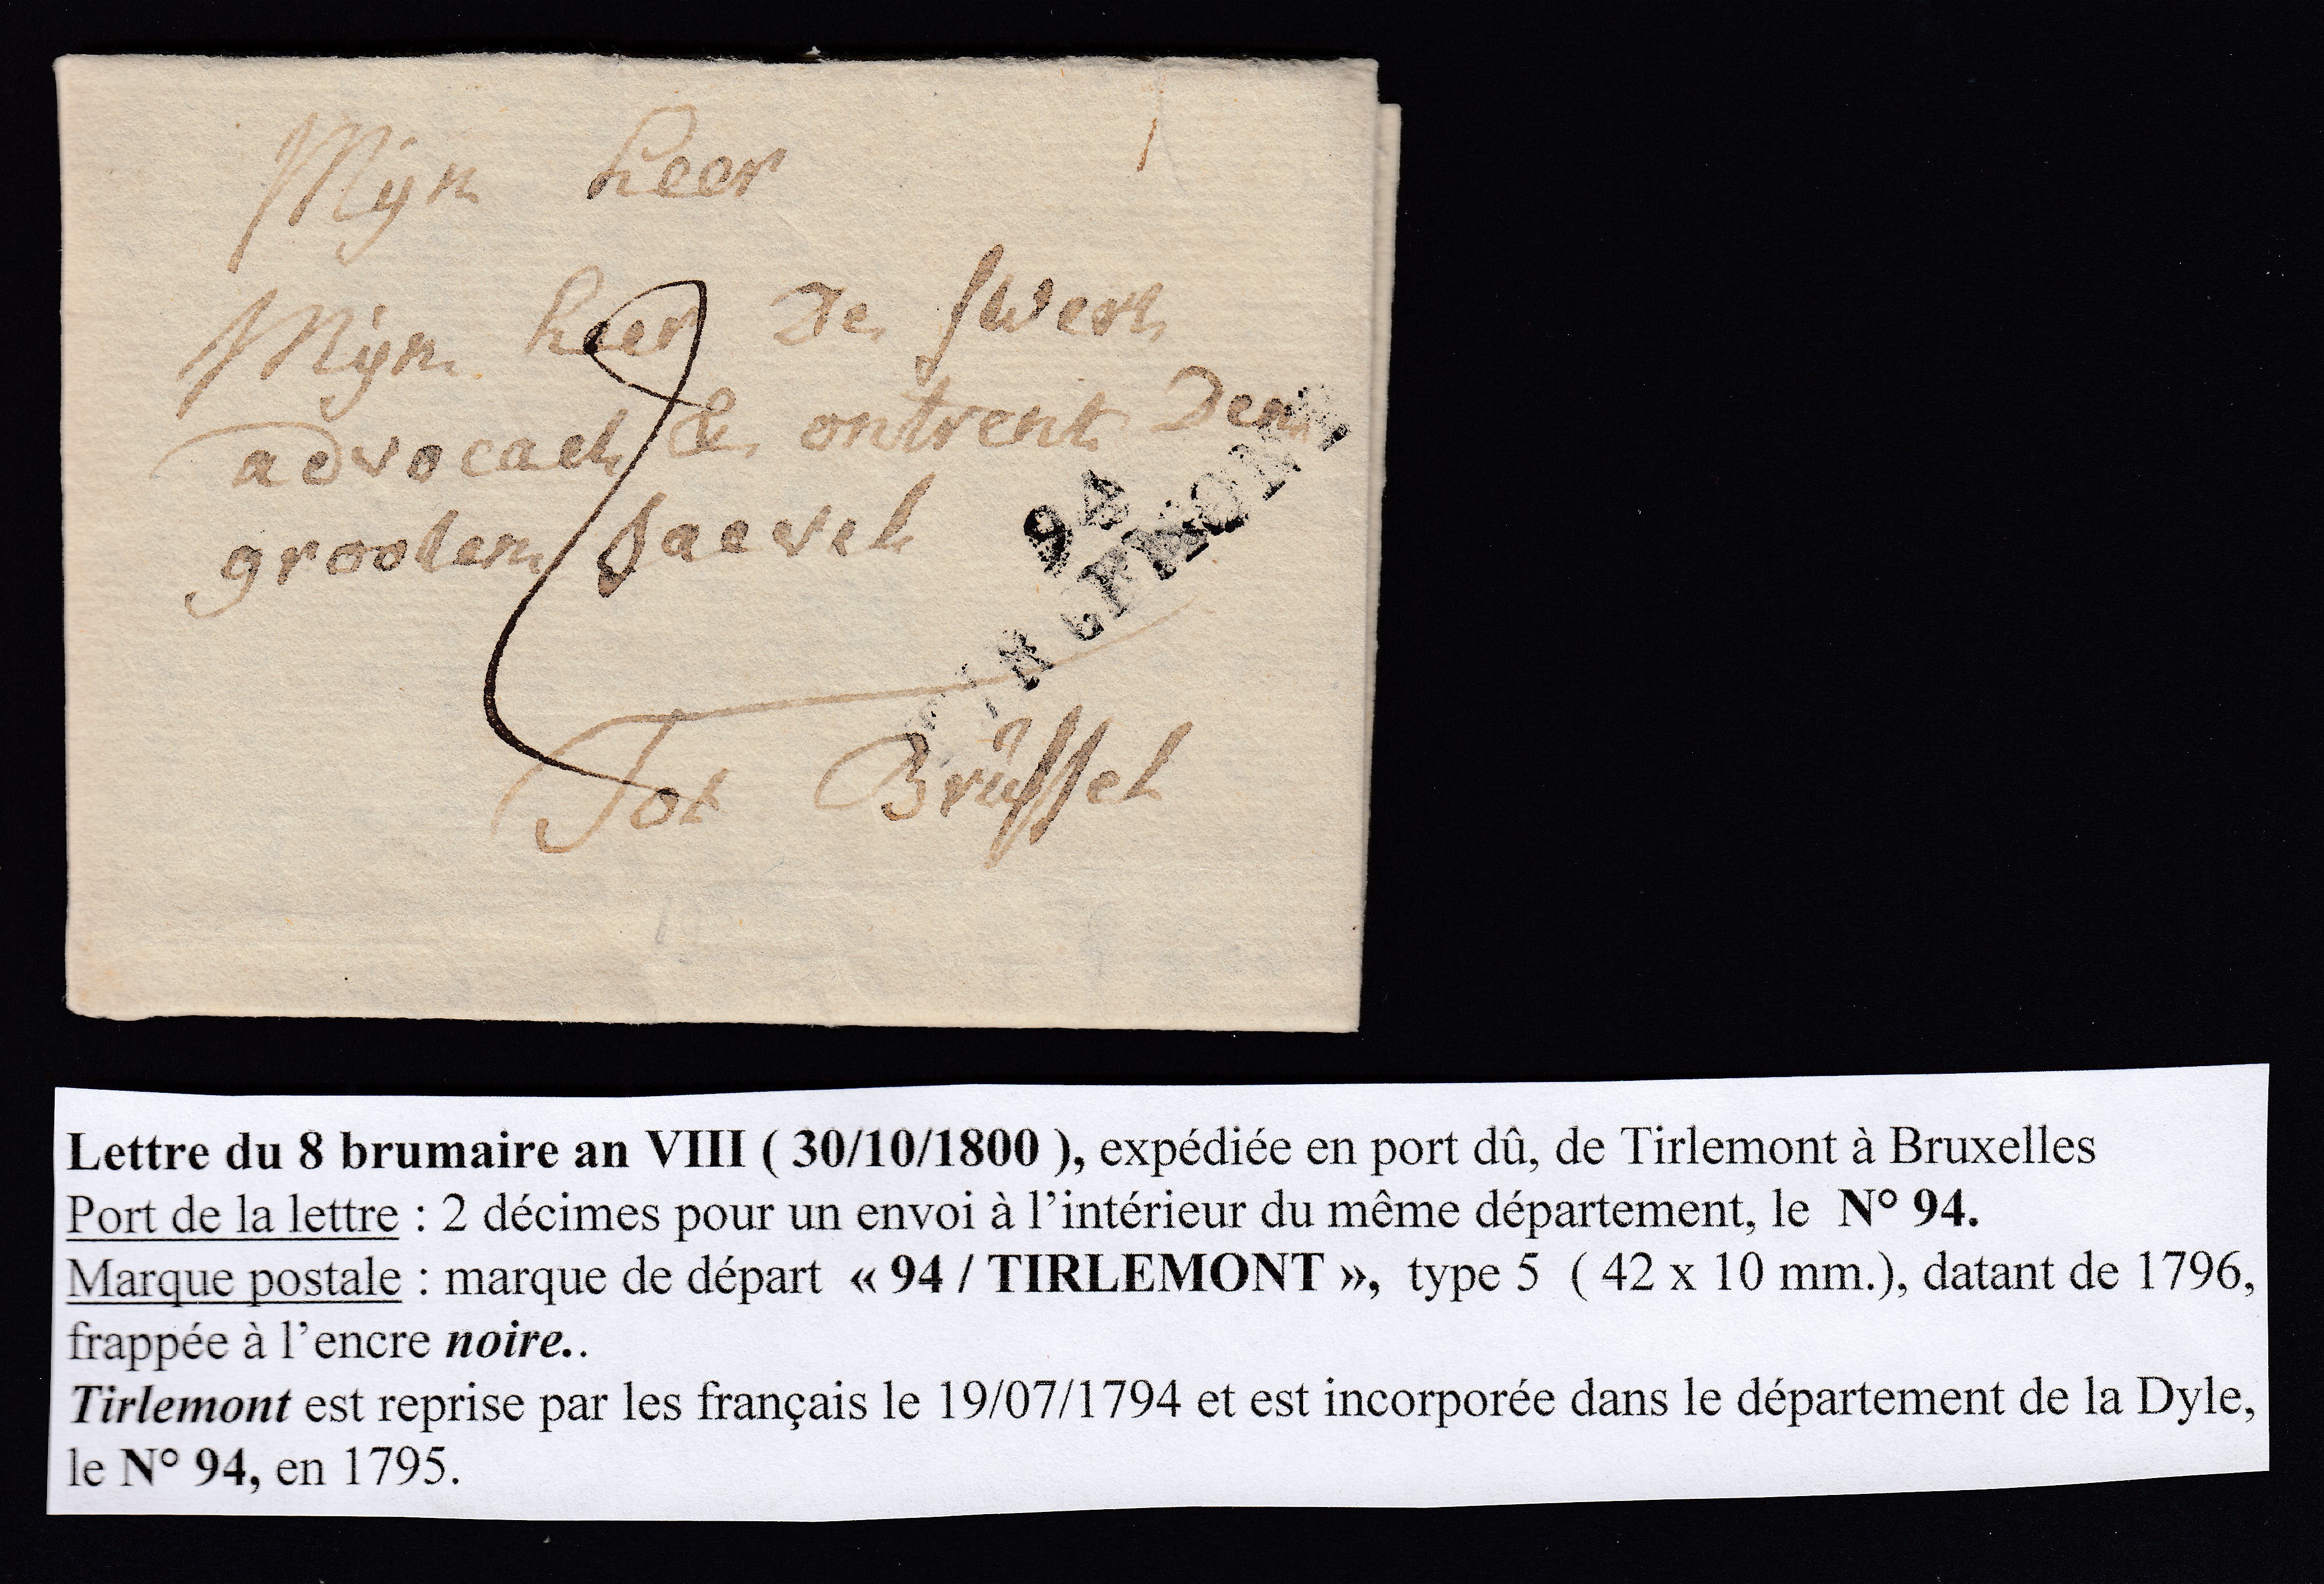 Mijn heer
Mijn heer De Swert
advocaet &. ontrent Den
grooten Saevel
94
TIRLEMONT
Tot Brüssel
2
Lettre du 8 brumaire an VIII ( 30/10/1800 ), expédiée en port dû, de Tirlemont à Bruxelles
Port de la lettre : 2 décimes pour un envoi à l’intérieur du même département, le N° 94.
Marque postale : marque de départ « 94 / TIRLEMONT », type 5 ( 42 x 10 mm.), datant de 1796,
frappée à l’encre noire..
Tirlemont est reprise par les français le 19/07/1794 et est incorporée dans le département de la Dyle,
le N° 94, en 1795.